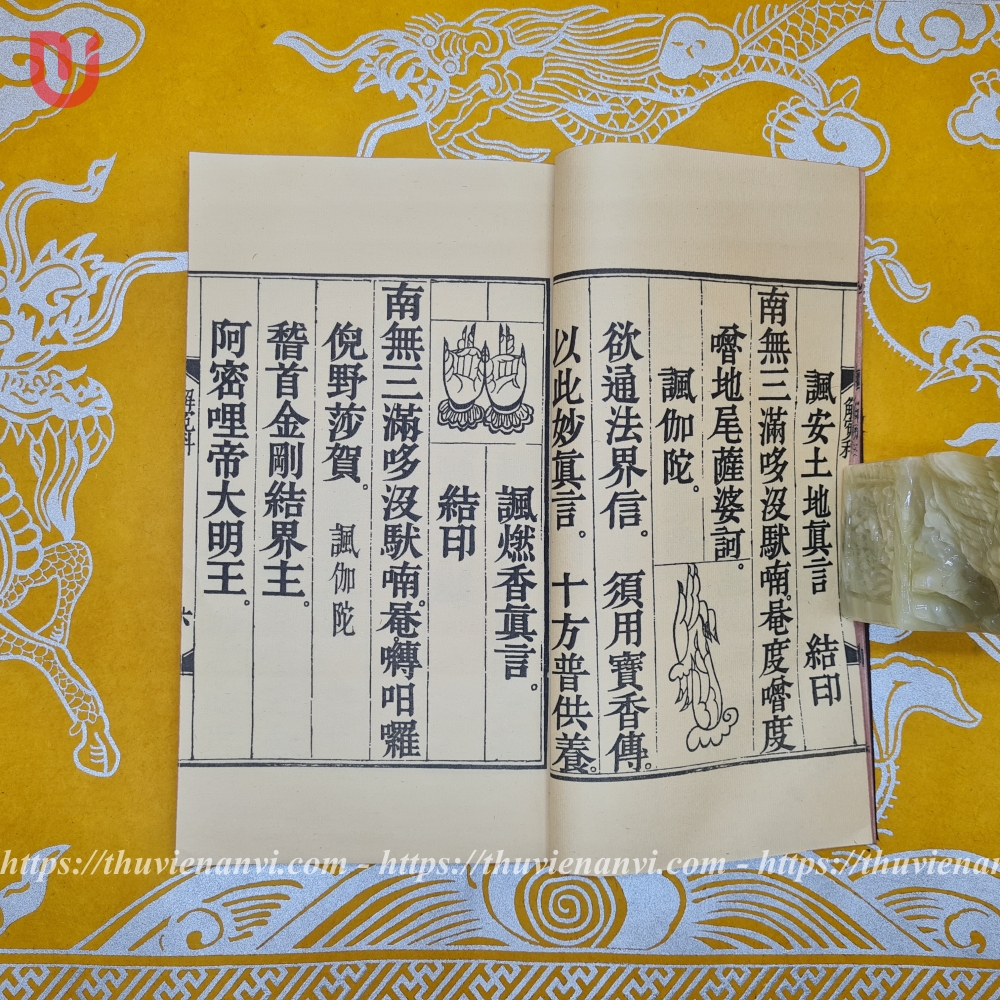 諷安土地眞言 結印
南無三滿哆沒馱喃。菴度嚕度
嚕地尾薩婆訶。
諷伽陀。
欲通法界信。 須用寶香傳。
以此妙眞言。 十方普供養。
諷燃香眞言。
結印
南無三滿哆沒馱喃。菴嚩日囉
倪野莎賀。 諷伽陀
稽首金剛結界主。
阿密哩帝大明王。
解冤科
六
https://thuvienanvi.com - https://thuvienanvi.com - https://thuviena